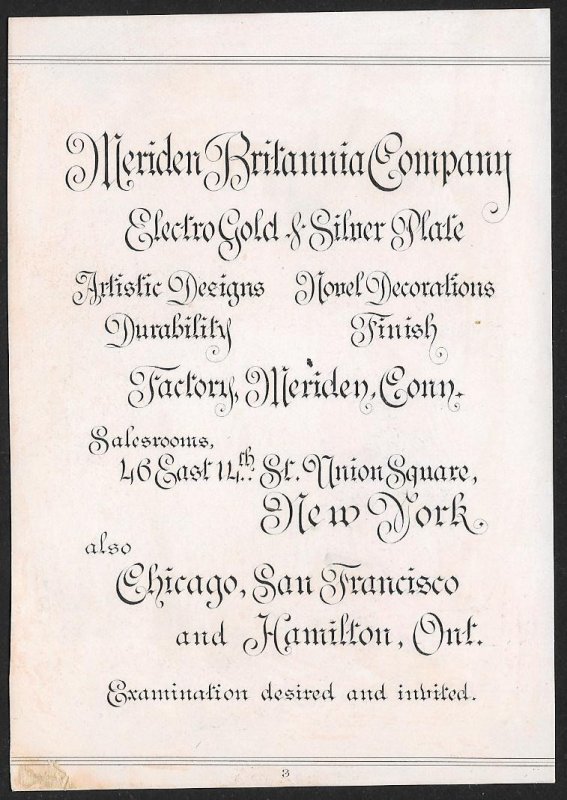 Meriden Britannia Company
Electro Gold & Silver Plate
Artistic Designs Novel Decorations
Durability Finish
Factory, Meriden, Conn.
Salesrooms,
46 East 14th St. Union Square,
New York,
also
Chicago, San Francisco
and Hamilton, Ont.
Examination desired and invited.
3